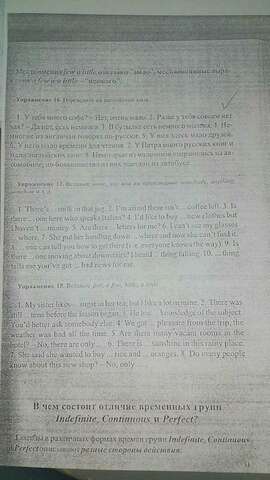 Местоимения few и little означают "мало", местоименные выра-
жения a few и a little – "немного".
Упражнение 16. Переведите на английский язык.
1. У тебя много софа? – Нет, очень мало. 2. Разве у тебя совсем нет
– Да нет, есть немного. 3. В бутылке есть немного молока. 4. Не-
многие из англичан говорят по-русски. 5. У них здесь мало друзей.
6. У него мало времени для чтения. 7. У Патрика много русских книг и
мало английских книг. 8. Некоторые из мальчиков отправились на ав-
томобиле, но большинство из них поехали на автобусе.
Упражнение 17. Вставьте some, any или их производные somebody, anything,
1. There's ... milk in that jug. 2. I'm afraid there isn't ... coffee left. 3. Is
there ... one here who speaks Italian? 4. I'd like to buy ... new clothes but
I haven't ... money. 5. Are there ... letters for me? 6. I can't see my glasses
... where. 7. She put her handbag down ... where and now she can't find it.
8. ... one can tell you how to get there (i.e. everyone knows the way). 9. Is
there ... one moving about downstairs? I heard ... thing falling. 10. ... thing
tells me you've got ... bad news for me.
Упражнение 18. Вставьте few, a few, little, a little
1. My sister likes ... sugar in her tea, but I like a lot in mine. 2. There was
still ... time before the lesson began. 3. He has ... knowledge of the subject.
You'd better ask somebody else. 4. We got ... pleasure from the trip, the
weather was bad all the time. 5. Are there many vacant rooms in the
hotel? – No, there are only ... 6. There is ... sunshine in this rainy place.
7. She said she wanted to buy ... rice and ... oranges. 8. Do many people
know about this new shop? – No, only ...
В чем состоит отличие временных групп
Indefinite, Continuous и Perfect?
Глаголы в различных формах времен групп Indefinite, Continuous
и Perfect описывают разные стороны действия.